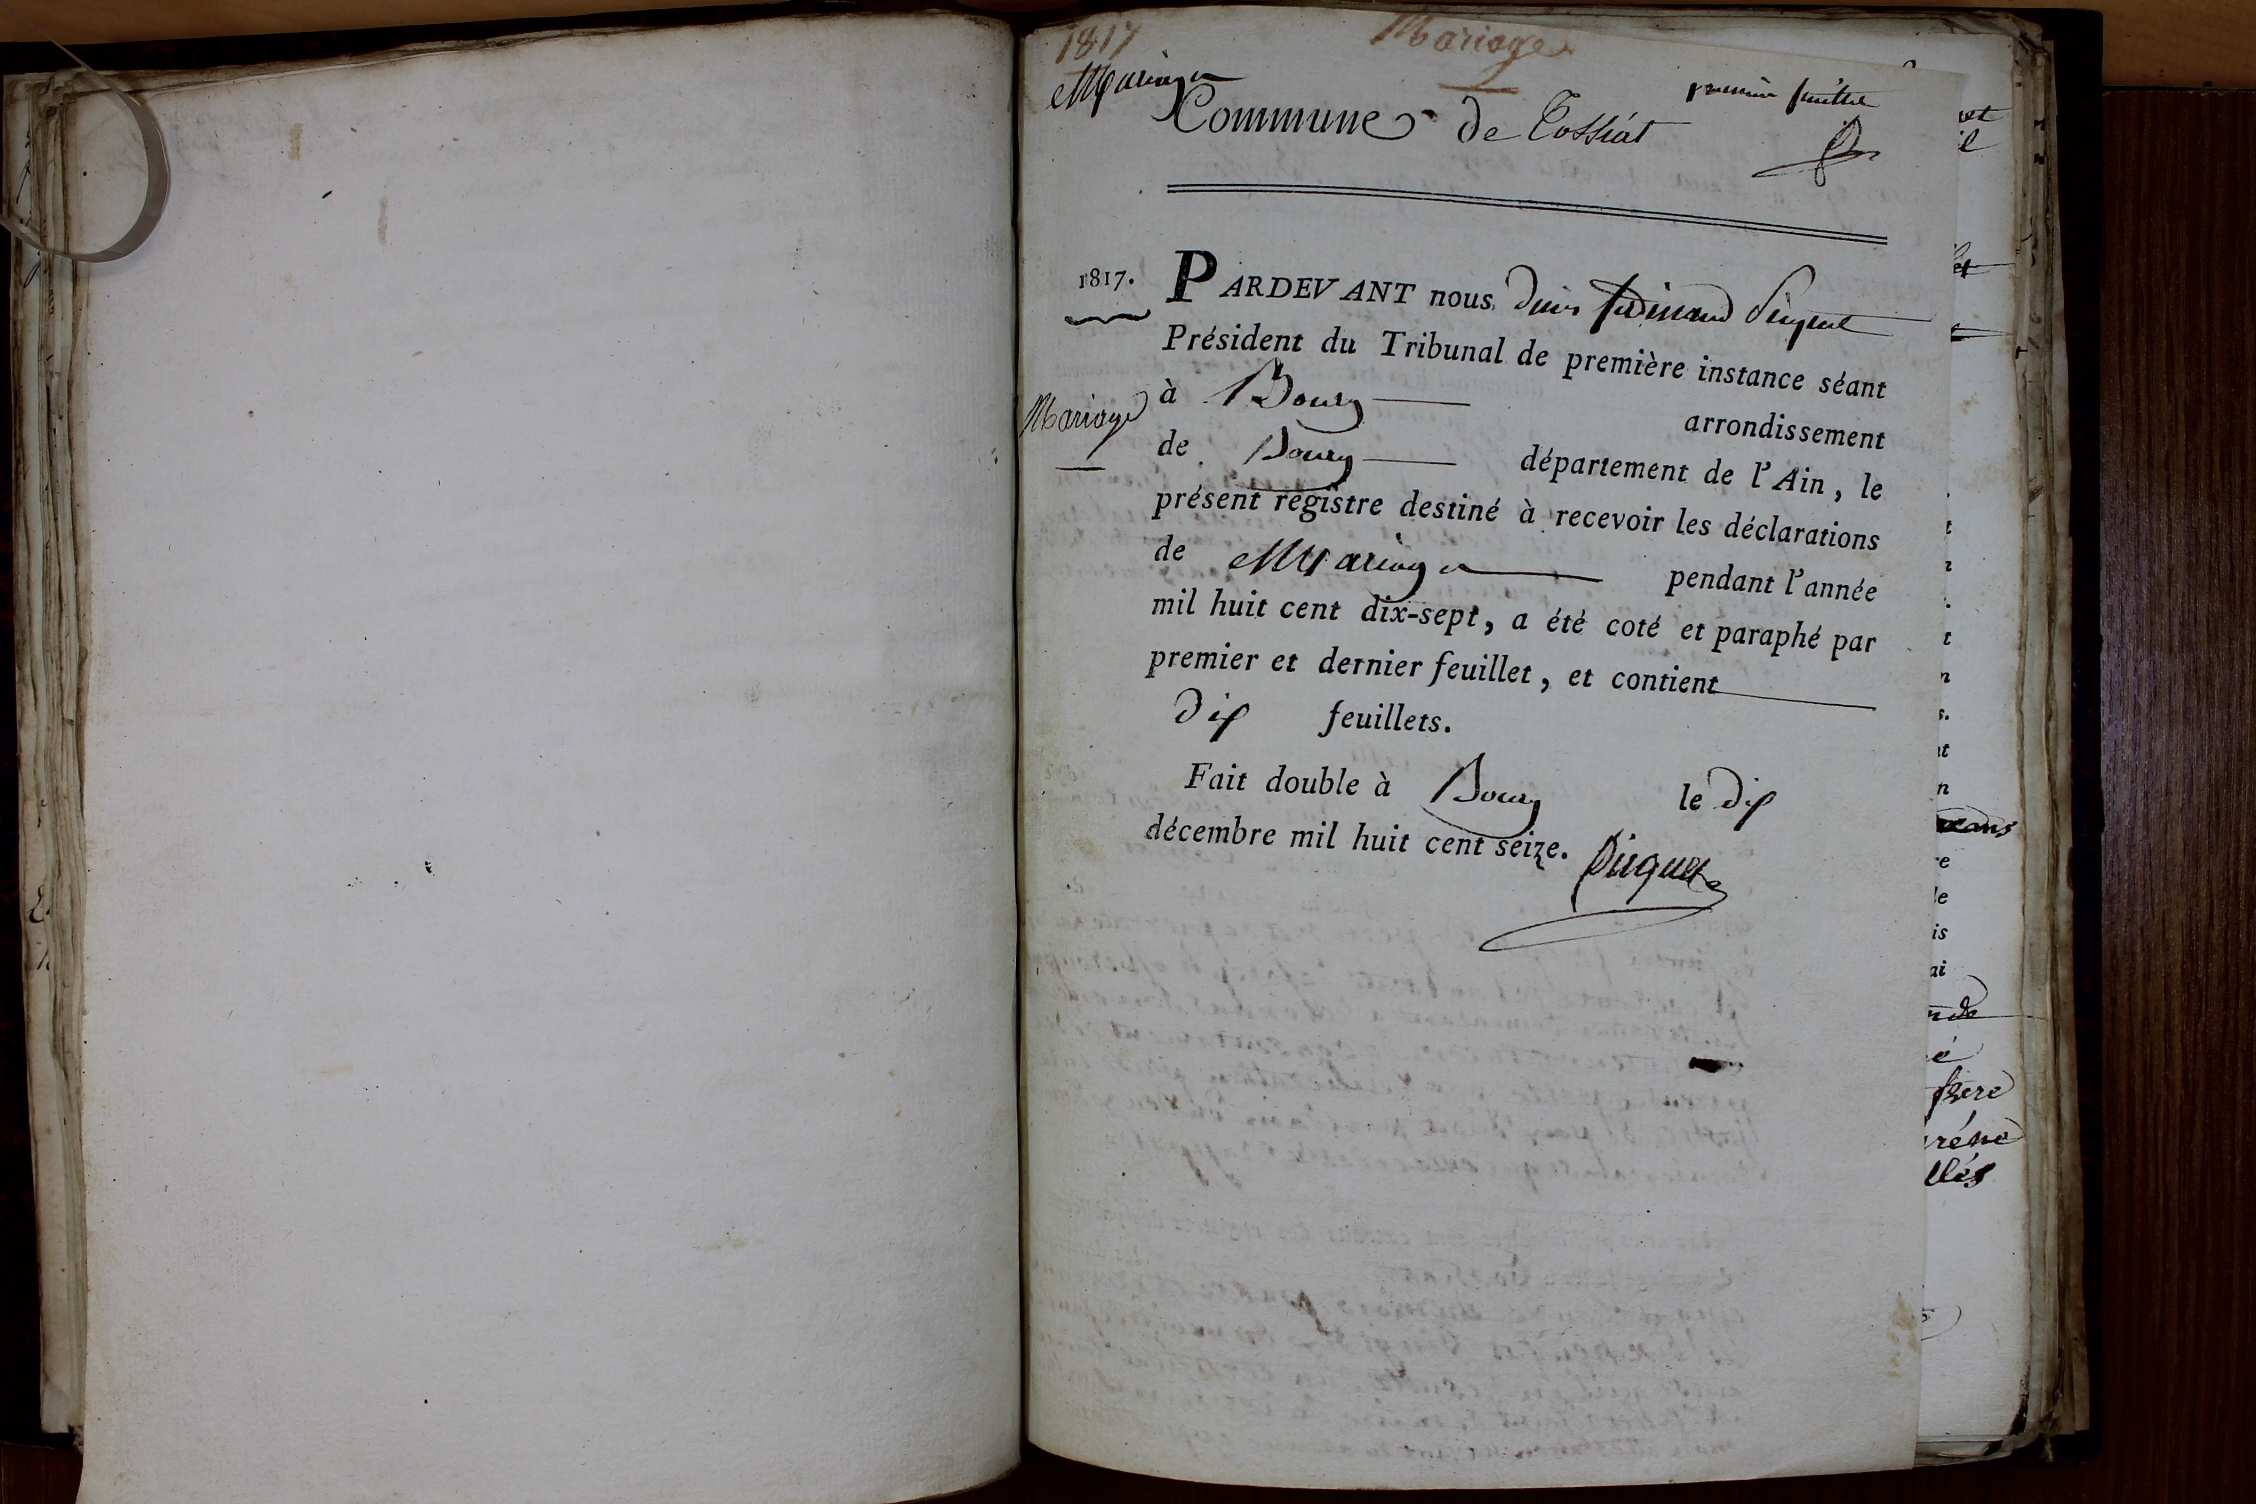 1817 Mariage
Mariages
Commune de Tossiat
premier feuillet
1817.
PARDEVANT nous Denis ferdinand Picquet
Président du Tribunal de première instance séant
à Bourg arrondissement
Mariage
de Bourg département de l'Ain, le
présent registre destiné à recevoir les déclarations
de Mariages pendant l'année
mil huit cent dix-sept, a été coté et paraphé par
premier et dernier feuillet, et contient
dix feuillets.
Fait double à Bourg le dix
décembre mil huit cent seize.
Picquet
frere